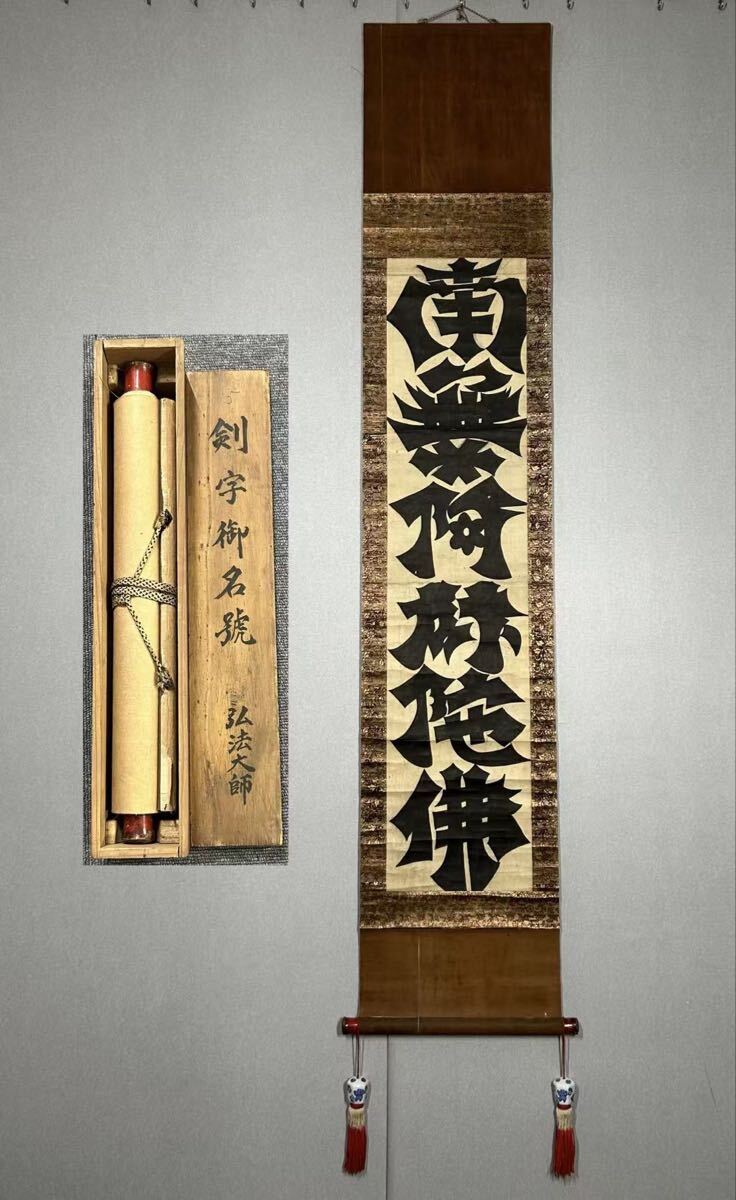 南無阿弥陀佛
剣字御名號
弘法大師